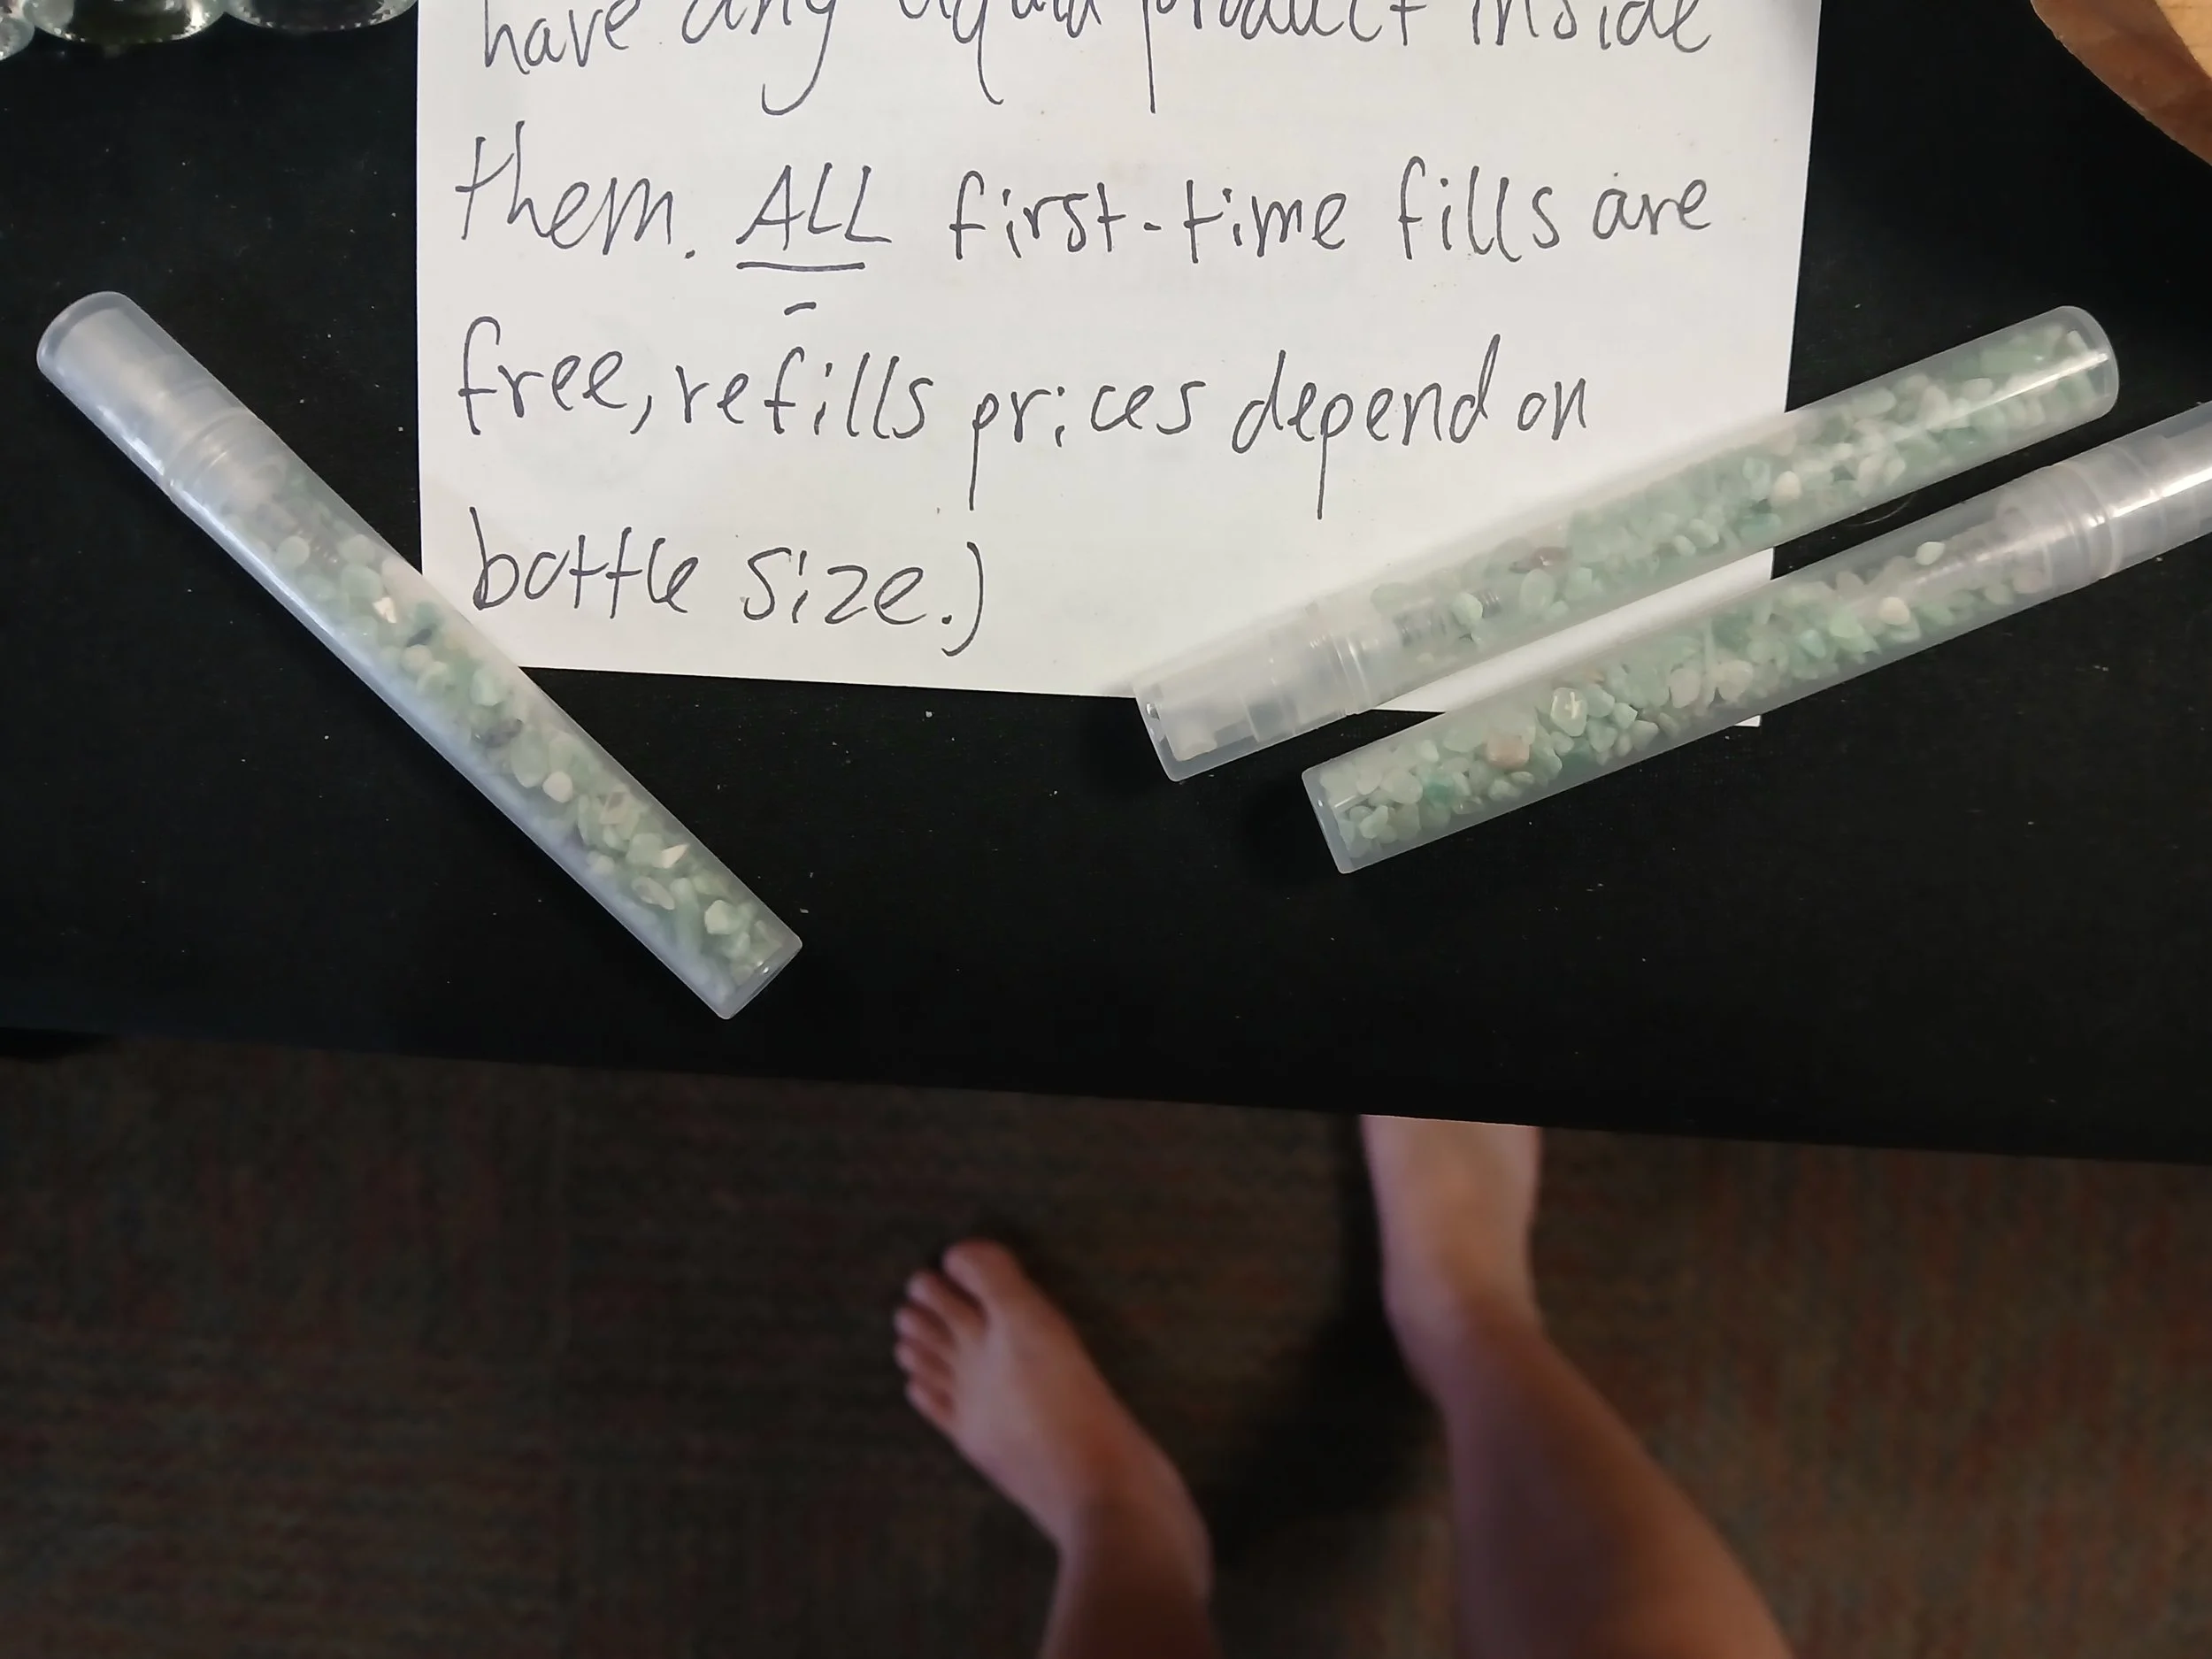 have any liquid product inside
them. ALL first-time fills are
free, refills prices depend on
bottle size.)